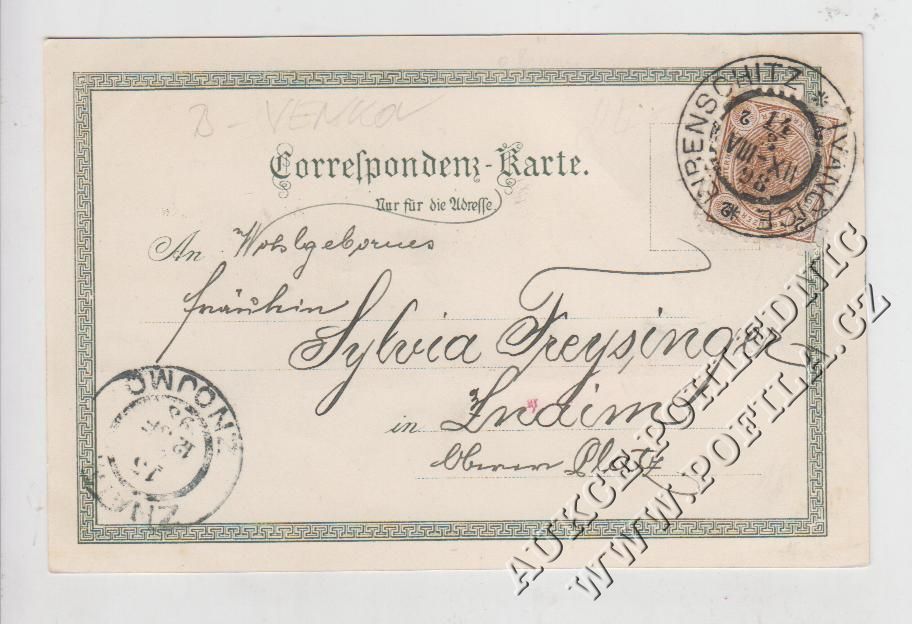 B - VENKOV
Correspondenz-Karte.
Nur für die Adresse
An Wohlgebornes
Fräulein
Sylvia Freysinger
in Znaim
Oberer Platz
EIBENSCHITZ * IVANČICE *
ZNOJMO
AUKCE POHLEDNIC
WWW.POFILA.CZ